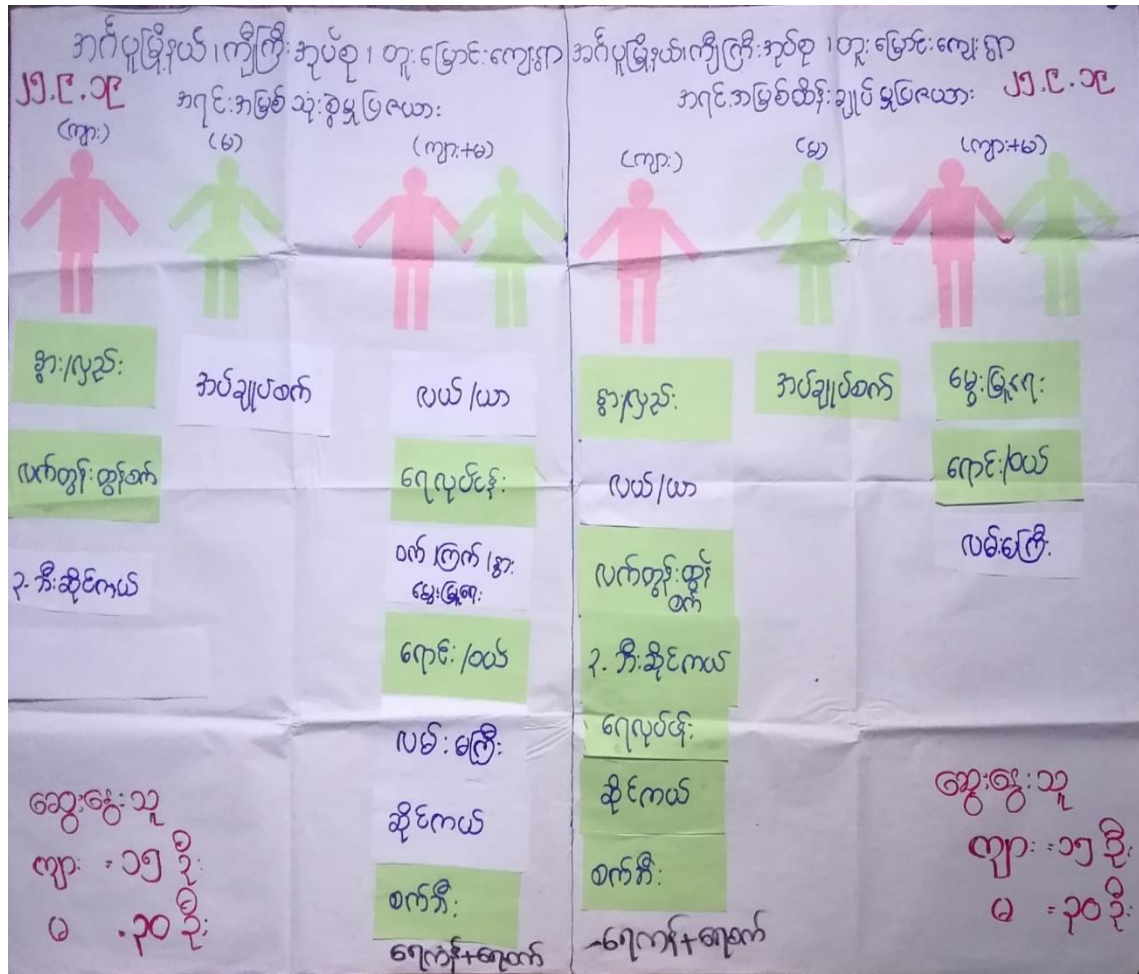 အင်္ဂပူမြို့နယ်၊ကျီကြီးအုပ်စု၊တူးမြောင်းကျေးရွာ
၂၅.၉.၁၉
အရင်းအမြစ်သုံးစွဲမှုပြဇယား
(ကျား)
(မ)
(ကျား+မ)
နွား/လှည်း
လက်တွန်းထွန်စက်
၃.ဘီးဆိုင်ကယ်
အပ်ချုပ်စက်
လယ်/ယာ
ရေလုပ်ငန်း
ဝက်/ကြက်/နွား
မွေးမြူရေး
ရောင်း/ဝယ်
လမ်းမကြီး
ဆိုင်ကယ်
စက်ဘီး
ရေကန်+ရေစက်
ဆွေးနွေးသူ
ကျား = ၁၅ ဦး
မ = ၃၀ ဦး
အင်္ဂပူမြို့နယ်၊ကျီကြီးအုပ်စု၊တူးမြောင်းကျေးရွာ
အရင်းအမြစ်ထိန်းချုပ်မှုပြဇယား
၂၅.၉.၁၉
(ကျား)
(မ)
(ကျား+မ)
နွား/လှည်း
လယ်/ယာ
လက်တွန်းထွန်
စက်
၃.ဘီးဆိုင်ကယ်
ရေလုပ်ငန်း
ဆိုင်ကယ်
စက်ဘီး
-ရေကန်+ရေစက်
အပ်ချုပ်စက်
မွေးမြူရေး
ရောင်း/ဝယ်
လမ်းမကြီး
ဆွေးနွေးသူ
ကျား = ၁၅ ဦး
မ = ၃၀ ဦး